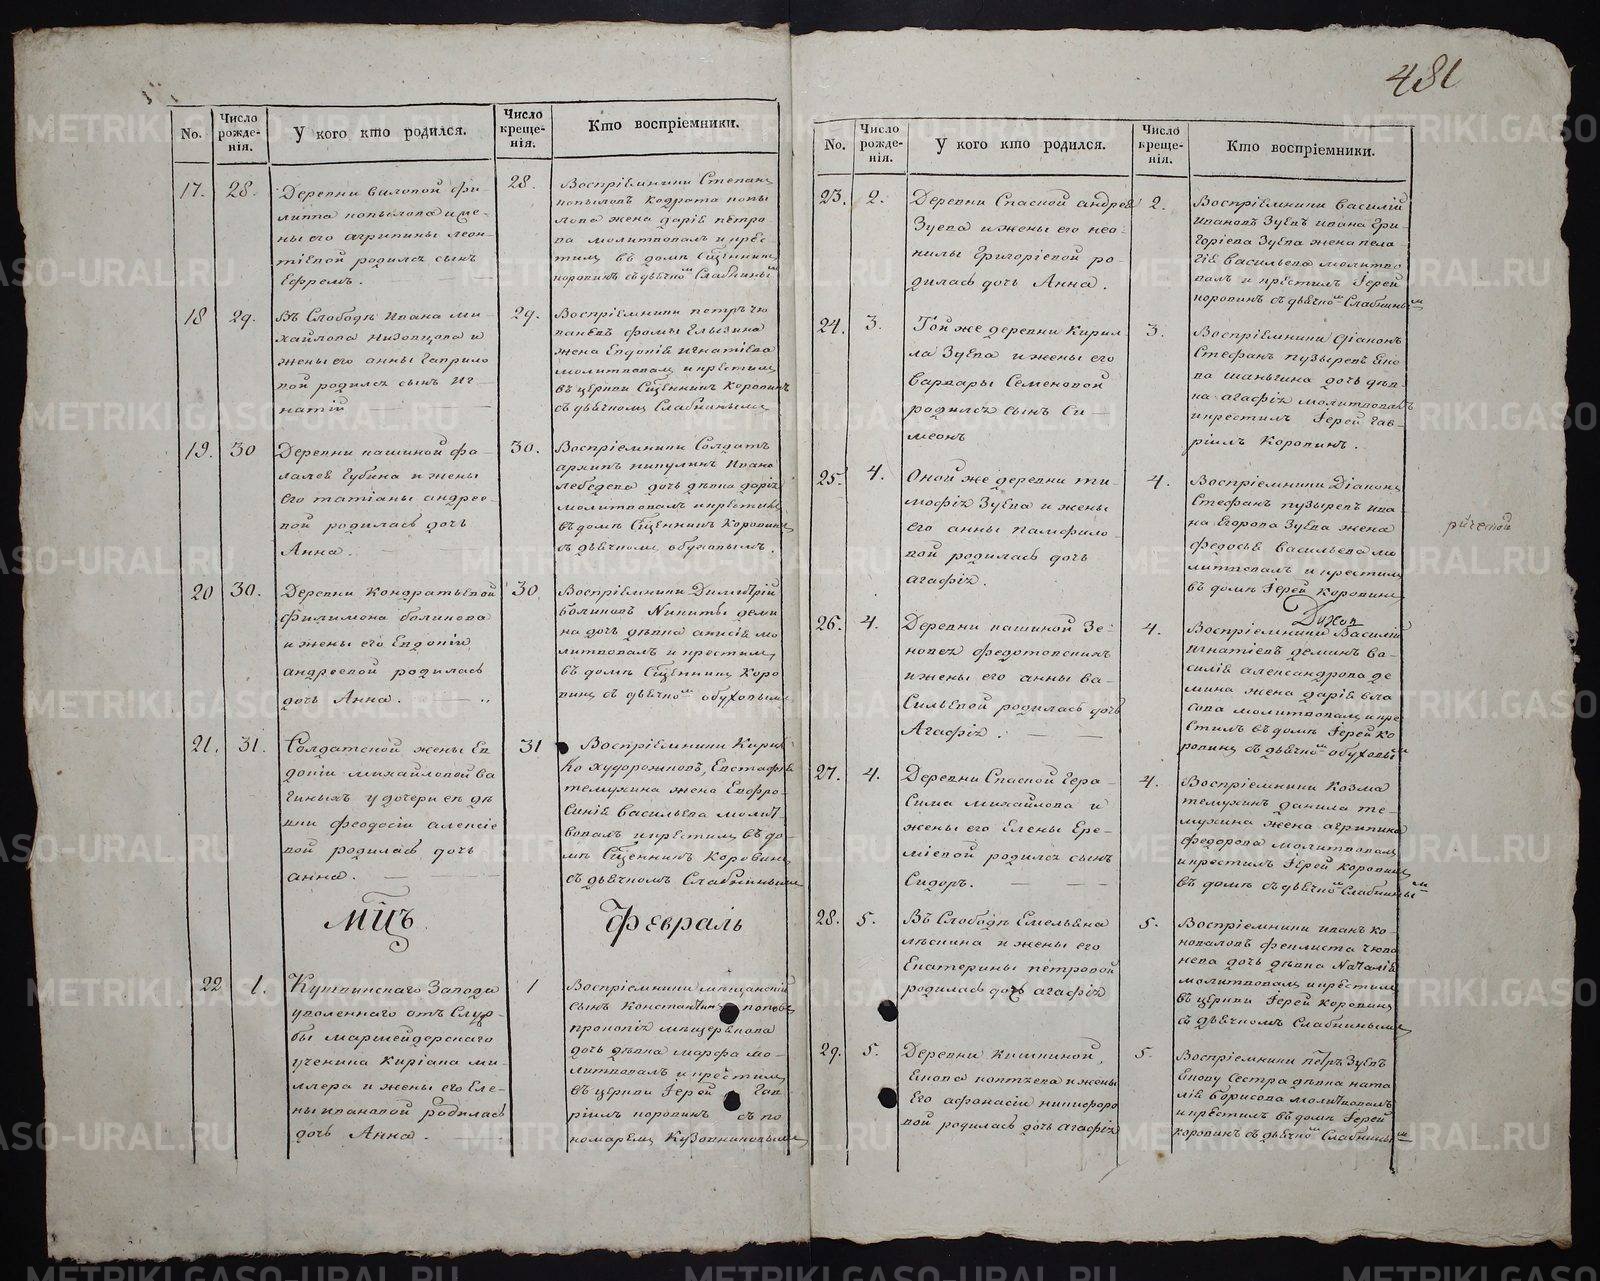 481
No.
Число рожде-нія.
У кого кто родился.
Число креще-нія.
Кто воспріемники.
17. 28.
Деревни
липпа копылова и же-
ны его агрипины леон-
тіевой родился сынъ
Ефремъ.
28.
Воспріемники Степанъ
копыловъ кодрата копы
лова жена дарія петро
ва молитвовалъ и кре
стилъ въ домѣ Сщенникъ
коровинъ съ дьячкомъ Слабнинымъ
18 29.
Въ Слободѣ Ивана ми-
хайлова Низовцова и
жены его анны гаврило
вой родился сынъ Иг-
натій
29.
Воспріемники петръ чю
паневъ фомы Глызина
жена Евдокія игнатіева
молитвовалъ и крестилъ
въ церкви Сщенникъ Коровинъ
съ дьячкомъ Слабнинымъ
19. 30
Деревни кашиной фа-
лалея Губина и жены
его татіаны андрее-
вой родилась дочь
Анна.
30.
Воспріемники Солдатъ
архипъ никулинъ Ивана
лебедева дочь дѣвка дарія
молитвовалъ и крестилъ
въ домѣ Сщенникъ Коровинъ
съ дьячкомъ обуховымъ.
20 30.
Деревни Кондратьевой
филимона боликова
и жены его Евдокіи
андреевой родилась
дочь Анна.
30
Воспріемники Димитрій
боликовъ Никиты деми
на дочь дѣвка анисія мо
литвовалъ и крестилъ
въ домѣ Сщенникъ Коро
винъ съ дьячкомъ обуховымъ
21. 31.
Солдатской жены Ев
докіи михайловой ва
гиныхъ у дочери ея дѣ
вки феодосіи алексіе
вой родилась дочь
анна.
31
Воспріемники Кирил
ко худорожковъ, Евстафія
темухина жена Евфро-
синія васильева молит
вовалъ и крестилъ въ до-
мѣ Сщенникъ Коровинъ
съ дьячкомъ Слабнинымъ
Мцъ
Февраль
22 1.
Кушвинскаго Завода
уволеннаго отъ Служ-
бы маршейдерскаго
ученика Киріана ми
ллера и жены его Еле-
ны ивановой родилась
дочь Анна.
1
Воспріемники мещанскій
сынъ Константинъ поповъ
прокопія мещерякова
дочь дѣвка марфа мо-
литвовалъ и крестилъ
въ церкви Іерей Гав
ріилъ коровинъ съ по
номаремъ Кузовниковымъ
No.
Число рожде-нія.
У кого кто родился.
Число креще-нія.
Кто воспріемники.
23. 2.
Деревни Спаской андрея
Зуева и жены его нео-
нилы Григоріевой ро-
дилась дочь Анна.
2.
Воспріемники Василій
ивановъ Зуевъ ивана Гри-
горіева Зуева жена пела-
гія васильева молитво
валъ и крестилъ Іерей
коровинъ съ дьячкомъ Слабнинымъ
24. 3.
Той же деревни Кирил-
ла Зуева и жены его
варвары Семеновой
родился сынъ Си-
меонъ
3.
Воспріемники діаконъ
Стефанъ пузыревъ Яко
ва шаньгина дочь дѣв-
ка агафія молитвовалъ
и крестилъ Іерей Гав-
ріилъ Коровинъ.
25. 4.
Оной же деревни ти-
мофія Зуева и жены
его анны памфило-
вой родилась дочь
агафія.
4.
Воспріемники Діаконъ
Стефанъ пузыревъ ива
на Егорова Зуева жена
федосья васильева мо
литвовалъ и крестилъ
въ домѣ Іерей Коровинъ
26. 4.
Деревни кашиной Зе-
новея федотовскихъ
и жены его анны ва-
сильевой родилась дочь
Агафія.
4.
Воспріемники Василій
игнатіевъ деминъ ва-
силія александрова де
мина жена дарія вла
сова молитвовалъ и кре
стилъ въ домѣ Іерей ко
ровинъ съ дьячкомъ обуховымъ
27. 4.
Деревни Спаской Гера-
сима михайлова и
жены его Елены Ере-
міевой родился сынъ
Сидоръ.
4.
Воспріемники Козма
темухинъ данила те-
мухина жена агрипина
федорова молитвовалъ
и крестилъ Іерей коровинъ
въ домѣ съ дьячкомъ Слабнинымъ
28. 5.
Въ Слободѣ Емельяна
мѣснина и жены его
Екатерины петровой
родилась дочь агафія
5.
Воспріемники иванъ ко-
новаловъ феклиста
нева дочь дѣвка Наталія
молитвовалъ и крестилъ
въ церкви Іерей коровинъ
съ дьячкомъ Слабнинымъ
29. 5.
Деревни кишкиной,
Якова коптѣева и жены
Его афанасіи никифоро
вой родилась дочь агафія
5.
Воспріемники петръ Зуевъ
Якову Сестра дѣвка ната
лія борисова молитвовалъ
и крестилъ въ домѣ Іерей
коровинъ съ дьячкомъ Слабнинымъ
METRIKI.GASO-URAL.RU